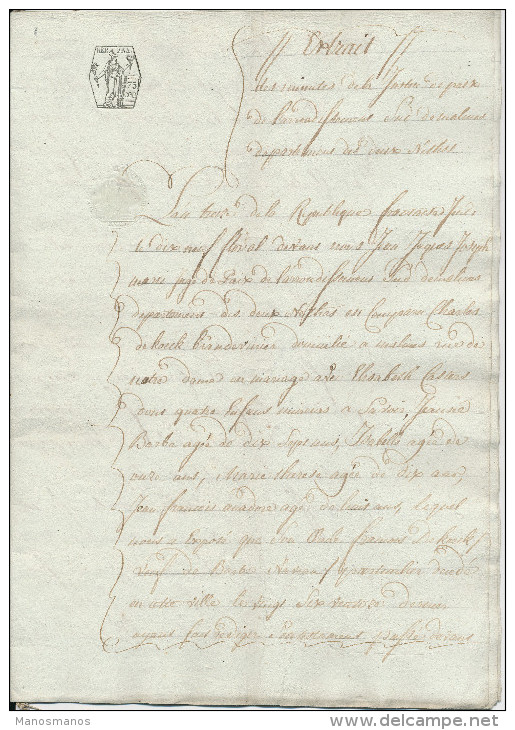 REP. FRA.
75
Extrait
des minutes de la Justice de paix
de l'arrondissement Sud de malines
departement des deux Nethes
L'an treize de la Republique francaise Indi
le dix neuf floréal devant nous Jean Joseph
juge de Paix de l'arrondissement Sud de malines
departement des deux Nethes est Comparu Charles
de Koeck domicilié a malines rue de
notre dame en mariage avec Elisabeth
quatre Enfans mineurs a Savoir, Jeanne
Barbe agée de dix Sept ans, Isabelle agée de
onze ans, Marie therese agée de dix ans
Jean francois agé de huit ans, lequel
nous a Exposé que Son Pere francois de Koeck
veuf de Barbe decedé
en cette ville le vingt Six ventose dernier
ayant fait rediger Son testament passé devant
Manosmanos
www.delcampe.net